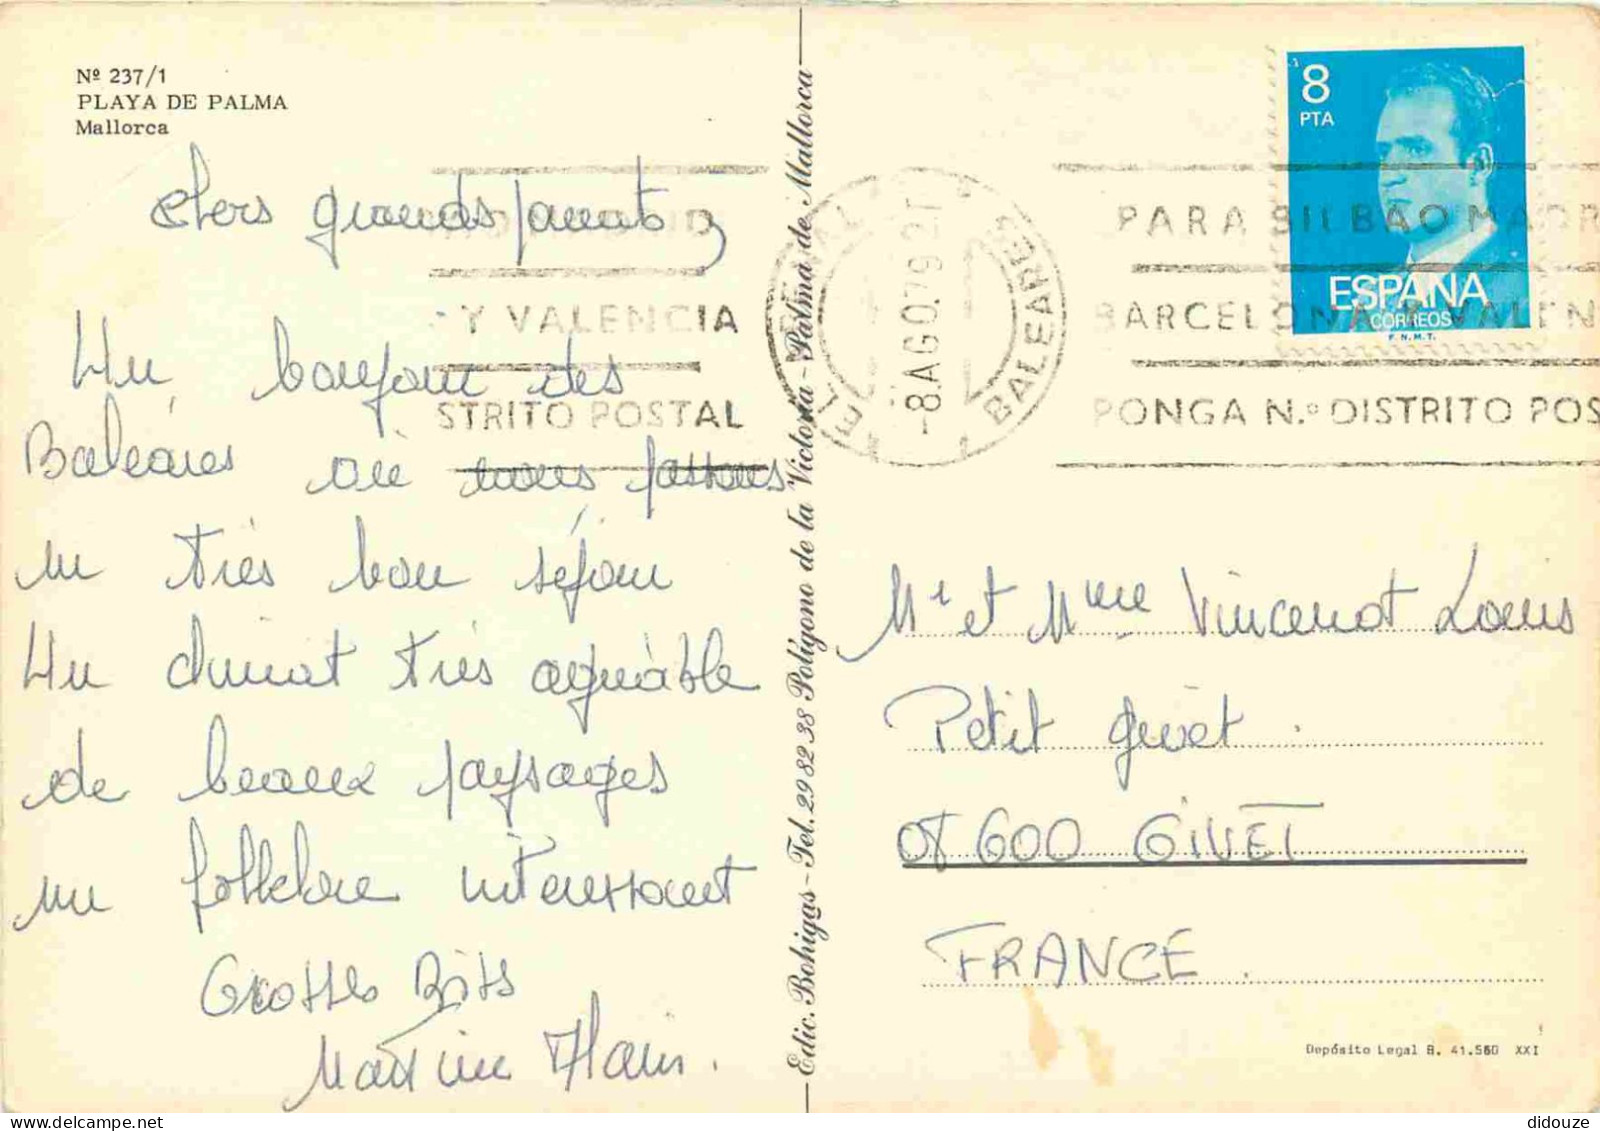 Nº 237/1
PLAYA DE PALMA
Mallorca
Chers grands parents,
Un bonjour des
Baléares où nous passons
un très bon séjour
Un climat très agréable
de beaux paysages
un folklore interessant
Grosses Bises
Martine Alain.
Y VALENCIA
STRITO POSTAL
Edic. Bohigas - Tel. 29 82 38 Polígono de la Victoria - Palma de Mallorca
EL ARENAL
BALEARES
-8.AGO.79 21
PARA BILBAO MADR
BARCELONA Y VALEN
PONGA N.º DISTRITO POS
8
PTA
ESPAÑA
CORREOS
F.N.M.T.
Mr et Mme Vincenot Louis
Petit givet.
08 600 GIVET
FRANCE.
Depósito Legal B. 41.560 XXI
didouze